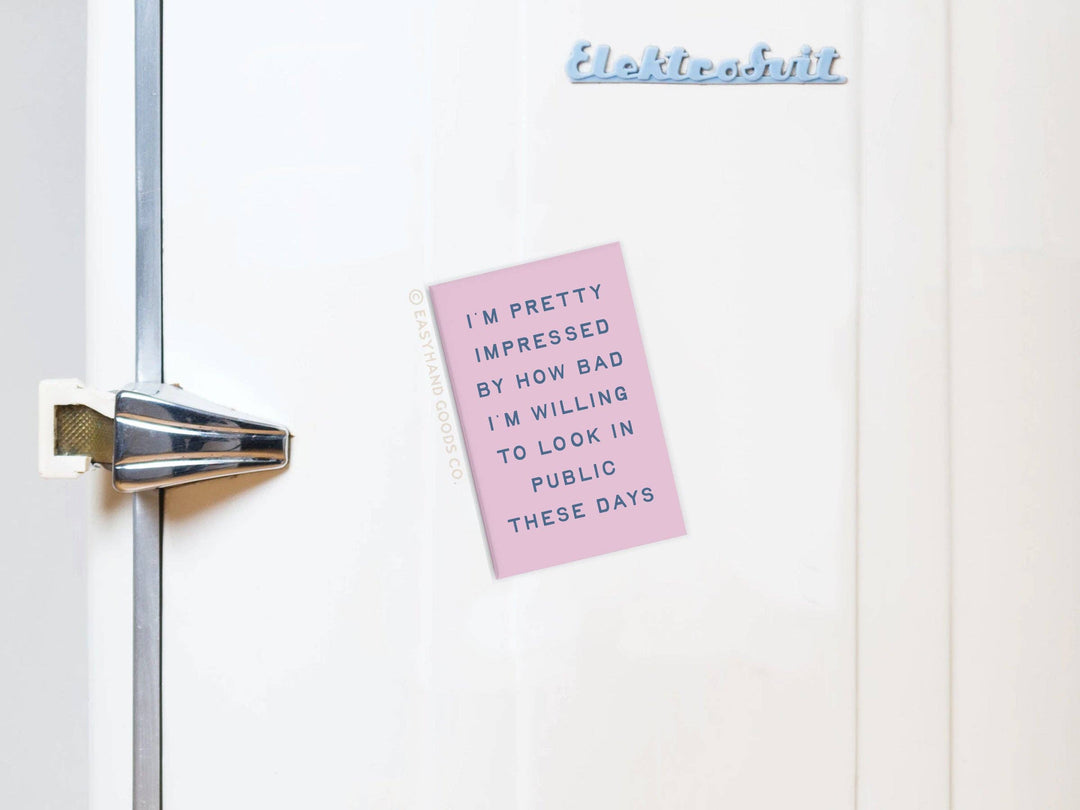 ElektroSvit
I'M PRETTY
IMPRESSED
BY HOW BAD
I'M WILLING
TO LOOK IN
PUBLIC
THESE DAYS
© EASYHAND GOODS CO.